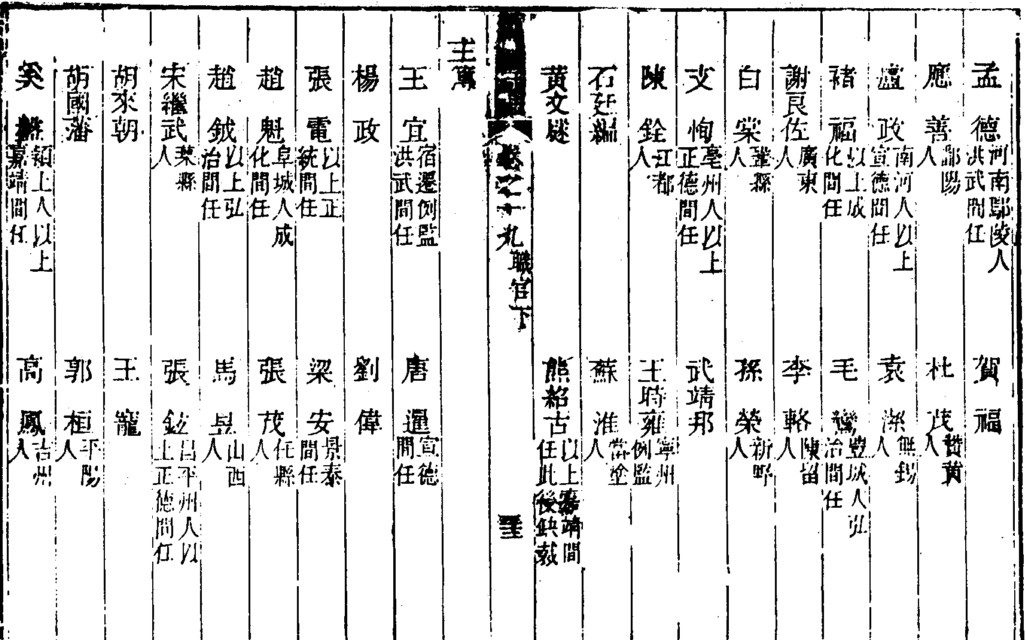 孟德河南鄢陵人洪武間任 賀福
應善鄱陽人 杜茂贊黃人
盧政南河人以上宣德間任 袁潔無錫人
褚福以上成化間任 毛鸞豐城人弘治間任
謝良佐廣東人 李輅陳留人
白棠人 孫榮新野人
艾恂亳州人以上正德間任 武靖邦
陳銓江都人 王時雍寧州例監
石廷 蘇淮當塗人
黃文 熊紹古以上嘉靖間任此後缺載
卷之十九 職官下
主簿
王宜宿遷例監洪武間任 唐暹宣德間任
楊政 劉偉
張電以上正統間任 梁安景泰間任
趙魁阜城人成化間任 張茂任縣人
趙鉞以上弘治間任 馬昇山西人
宋繼武葉縣人 張鉉昌平州人以上正德間任
胡來朝 王寵
胡國藩 郭桓平陽人
奚潁上人以上嘉靖間任 高鳳吉州人